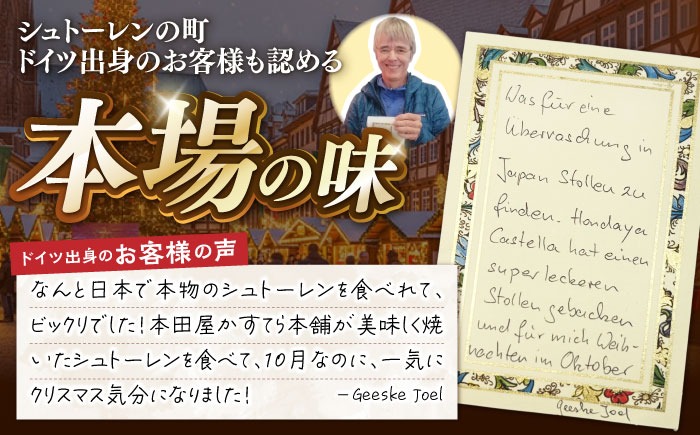 シュトーレンの町
ドイツ出身のお客様も認める
本場の味
ドイツ出身のお客様の声
なんと日本で本物のシュトーレンを食べれて、
ビックリでした!本田屋かすてら本舗が美味しく焼
いたシュトーレンを食べて、10月なのに、一気に
クリスマス気分になりました!
－Geeske Joel
Was für eine
Überraschung in
Japan Stollen zu
finden. Hondaya
Castella hat einen
super leckeren
Stollen gebacken
und für mich Weih-
nachten im Oktober
Geeske Joel